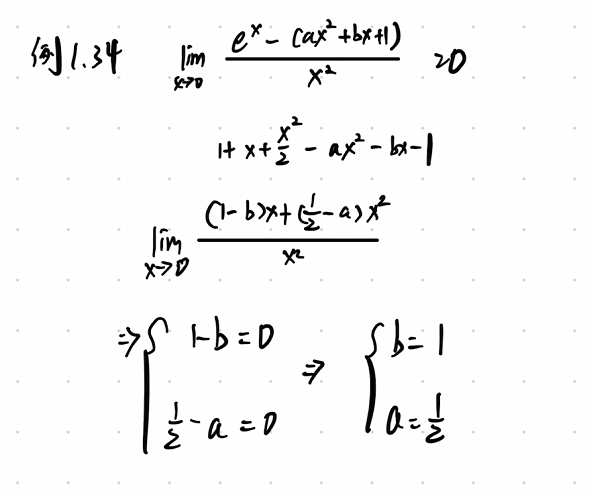 例1.34 lim x→0 (e^x - (ax²+bx+1))/x² = 0
1+x+x²/2 - ax² - bx - 1
lim x→0 ((1-b)x+(1/2-a)x²)/x²
⇒ { 1-b=0 ⇒ { b=1
1/2-a=0 a=1/2